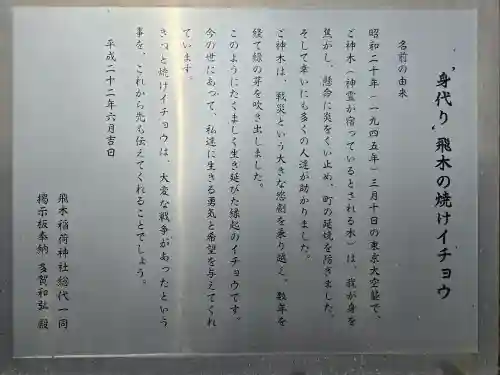 “身代り„ 飛木の焼けイチョウ
名前の由来
昭和二十年(一九四五年)三月十日の東京大空襲で、
ご神木(神霊が宿っているとされる木)は、我が身を
焦がし、懸命に炎をくい止め、町の延焼を防ぎました。
そして幸いにも多くの人達が助かりました。
ご神木は、戦災という大きな悲劇を乗り越え、数年を
経て緑の芽を吹き出しました。
このようにたくましく生き延びた縁起のイチョウです。
今の世にあって、私達に生きる勇気と希望を与えてくれ
ています。
きっと焼けイチョウは、大変な戦争があったという
事を、これから先も伝えてくれることでしょう。
平成二十二年六月吉日
飛木稲荷神社総代一同
掲示板奉納 多賀和弘 殿